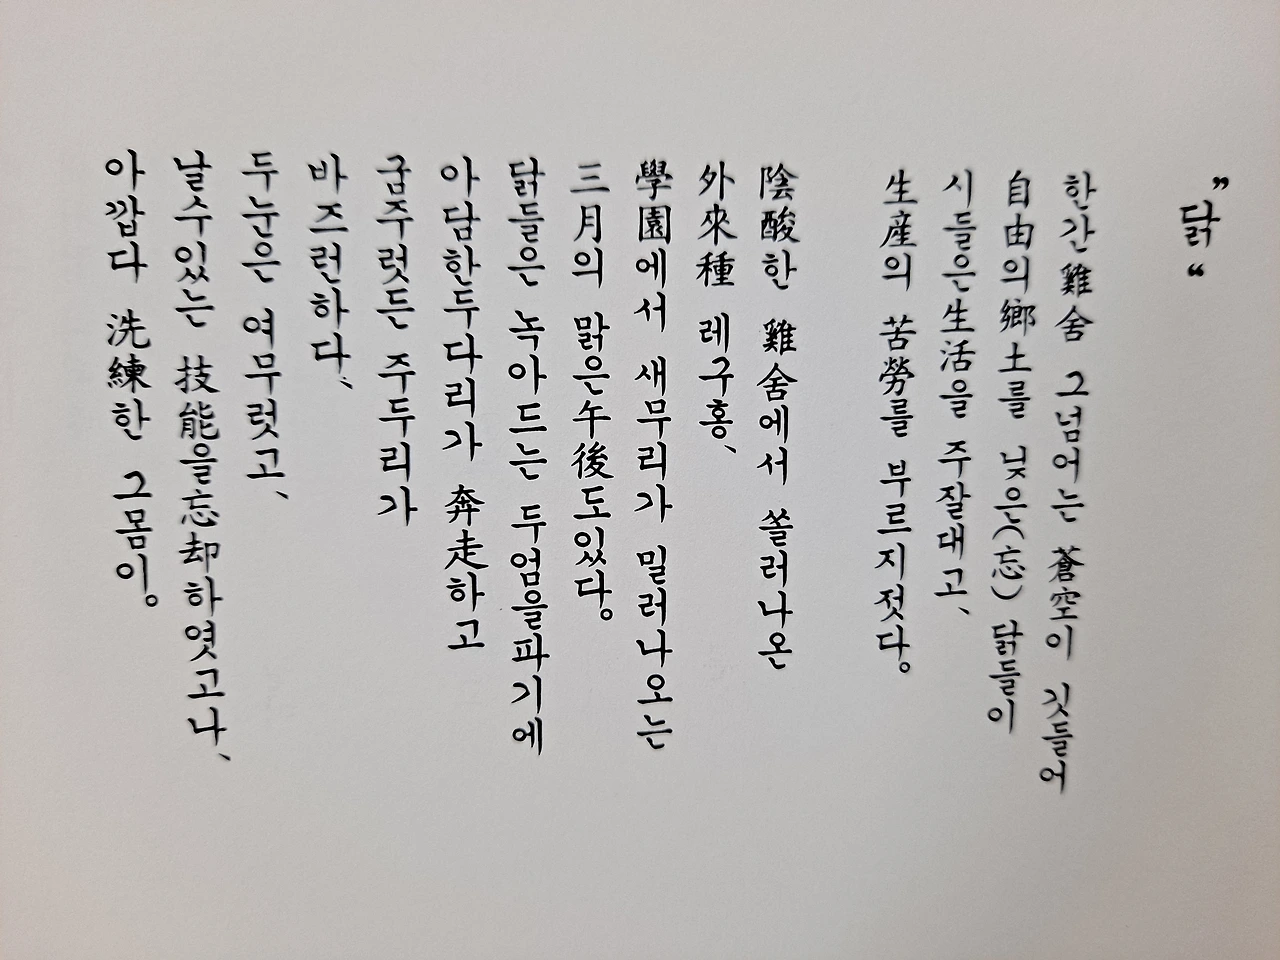 ”닭“
한간雞舍 그넘어는 蒼空이 깃들어
自由의鄕土를 닞은(忘) 닭들이
시들은生活을 주잘대고、
生産의 苦勞를 부르지젓다。
陰酸한 雞舍에서 쏠러나온
外來種 레구홍、
學園에서 새무리가 밀러나오는
三月의 맑은午後도있다。
닭들은 녹아드는 두엄을파기에
아담한두다리가 奔走하고
굼주럿든 주두리가
바즈런하다、
두눈은 여무럿고、
날수있는 技能을忘却하엿고나、
아깝다 洗練한 그몸이。